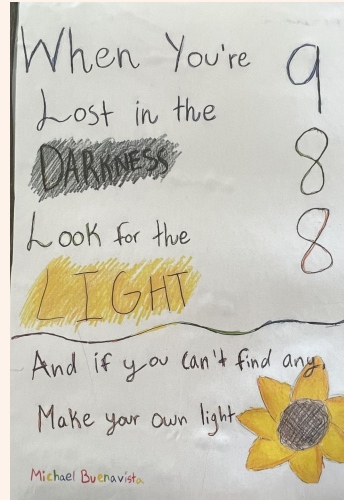 When You're
Lost in the
DARKNESS
Look for the
LIGHT
9
8
8
And if you can't find any,
Make your own light
Michael Buenavista